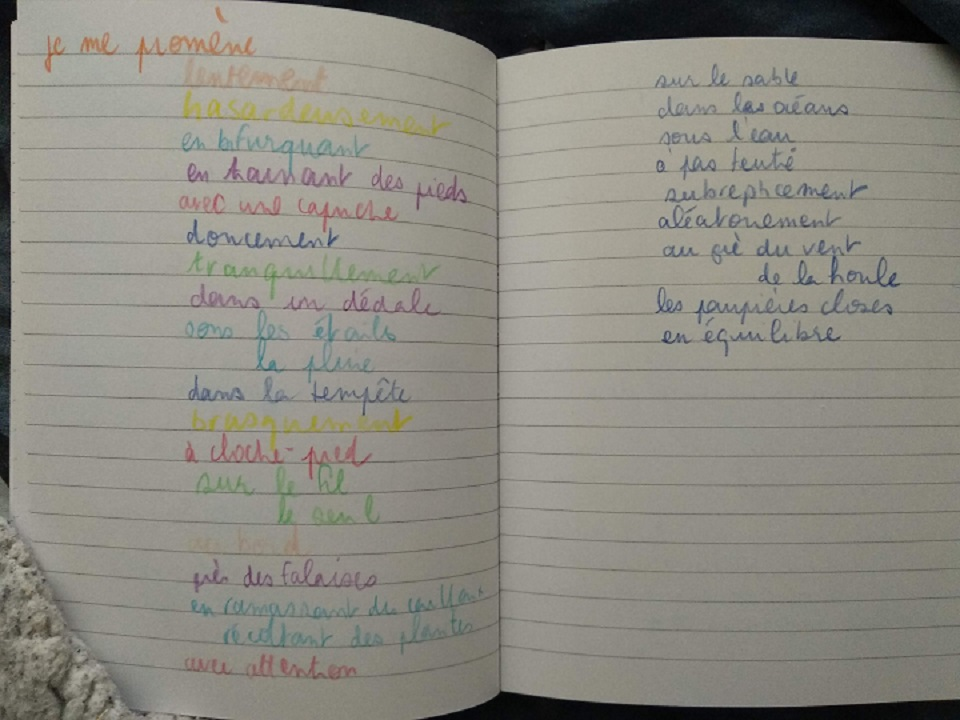 je me promène
lentement
hasardeusement
en bifurquant
en traînant des pieds
avec une capuche
doucement
tranquillement
dans un dédale
sous les étoiles
la pluie
dans la tempête
brusquement
à cloche-pied
sur le fil
le seuil
au bord
près des falaises
en ramassant des cailloux
récoltant des plantes
avec attention
sur le sable
dans les océans
sous l'eau
à pas feutré
subrepticement
aléatoirement
au gré du vent
de la houle
les paupières closes
en équilibre